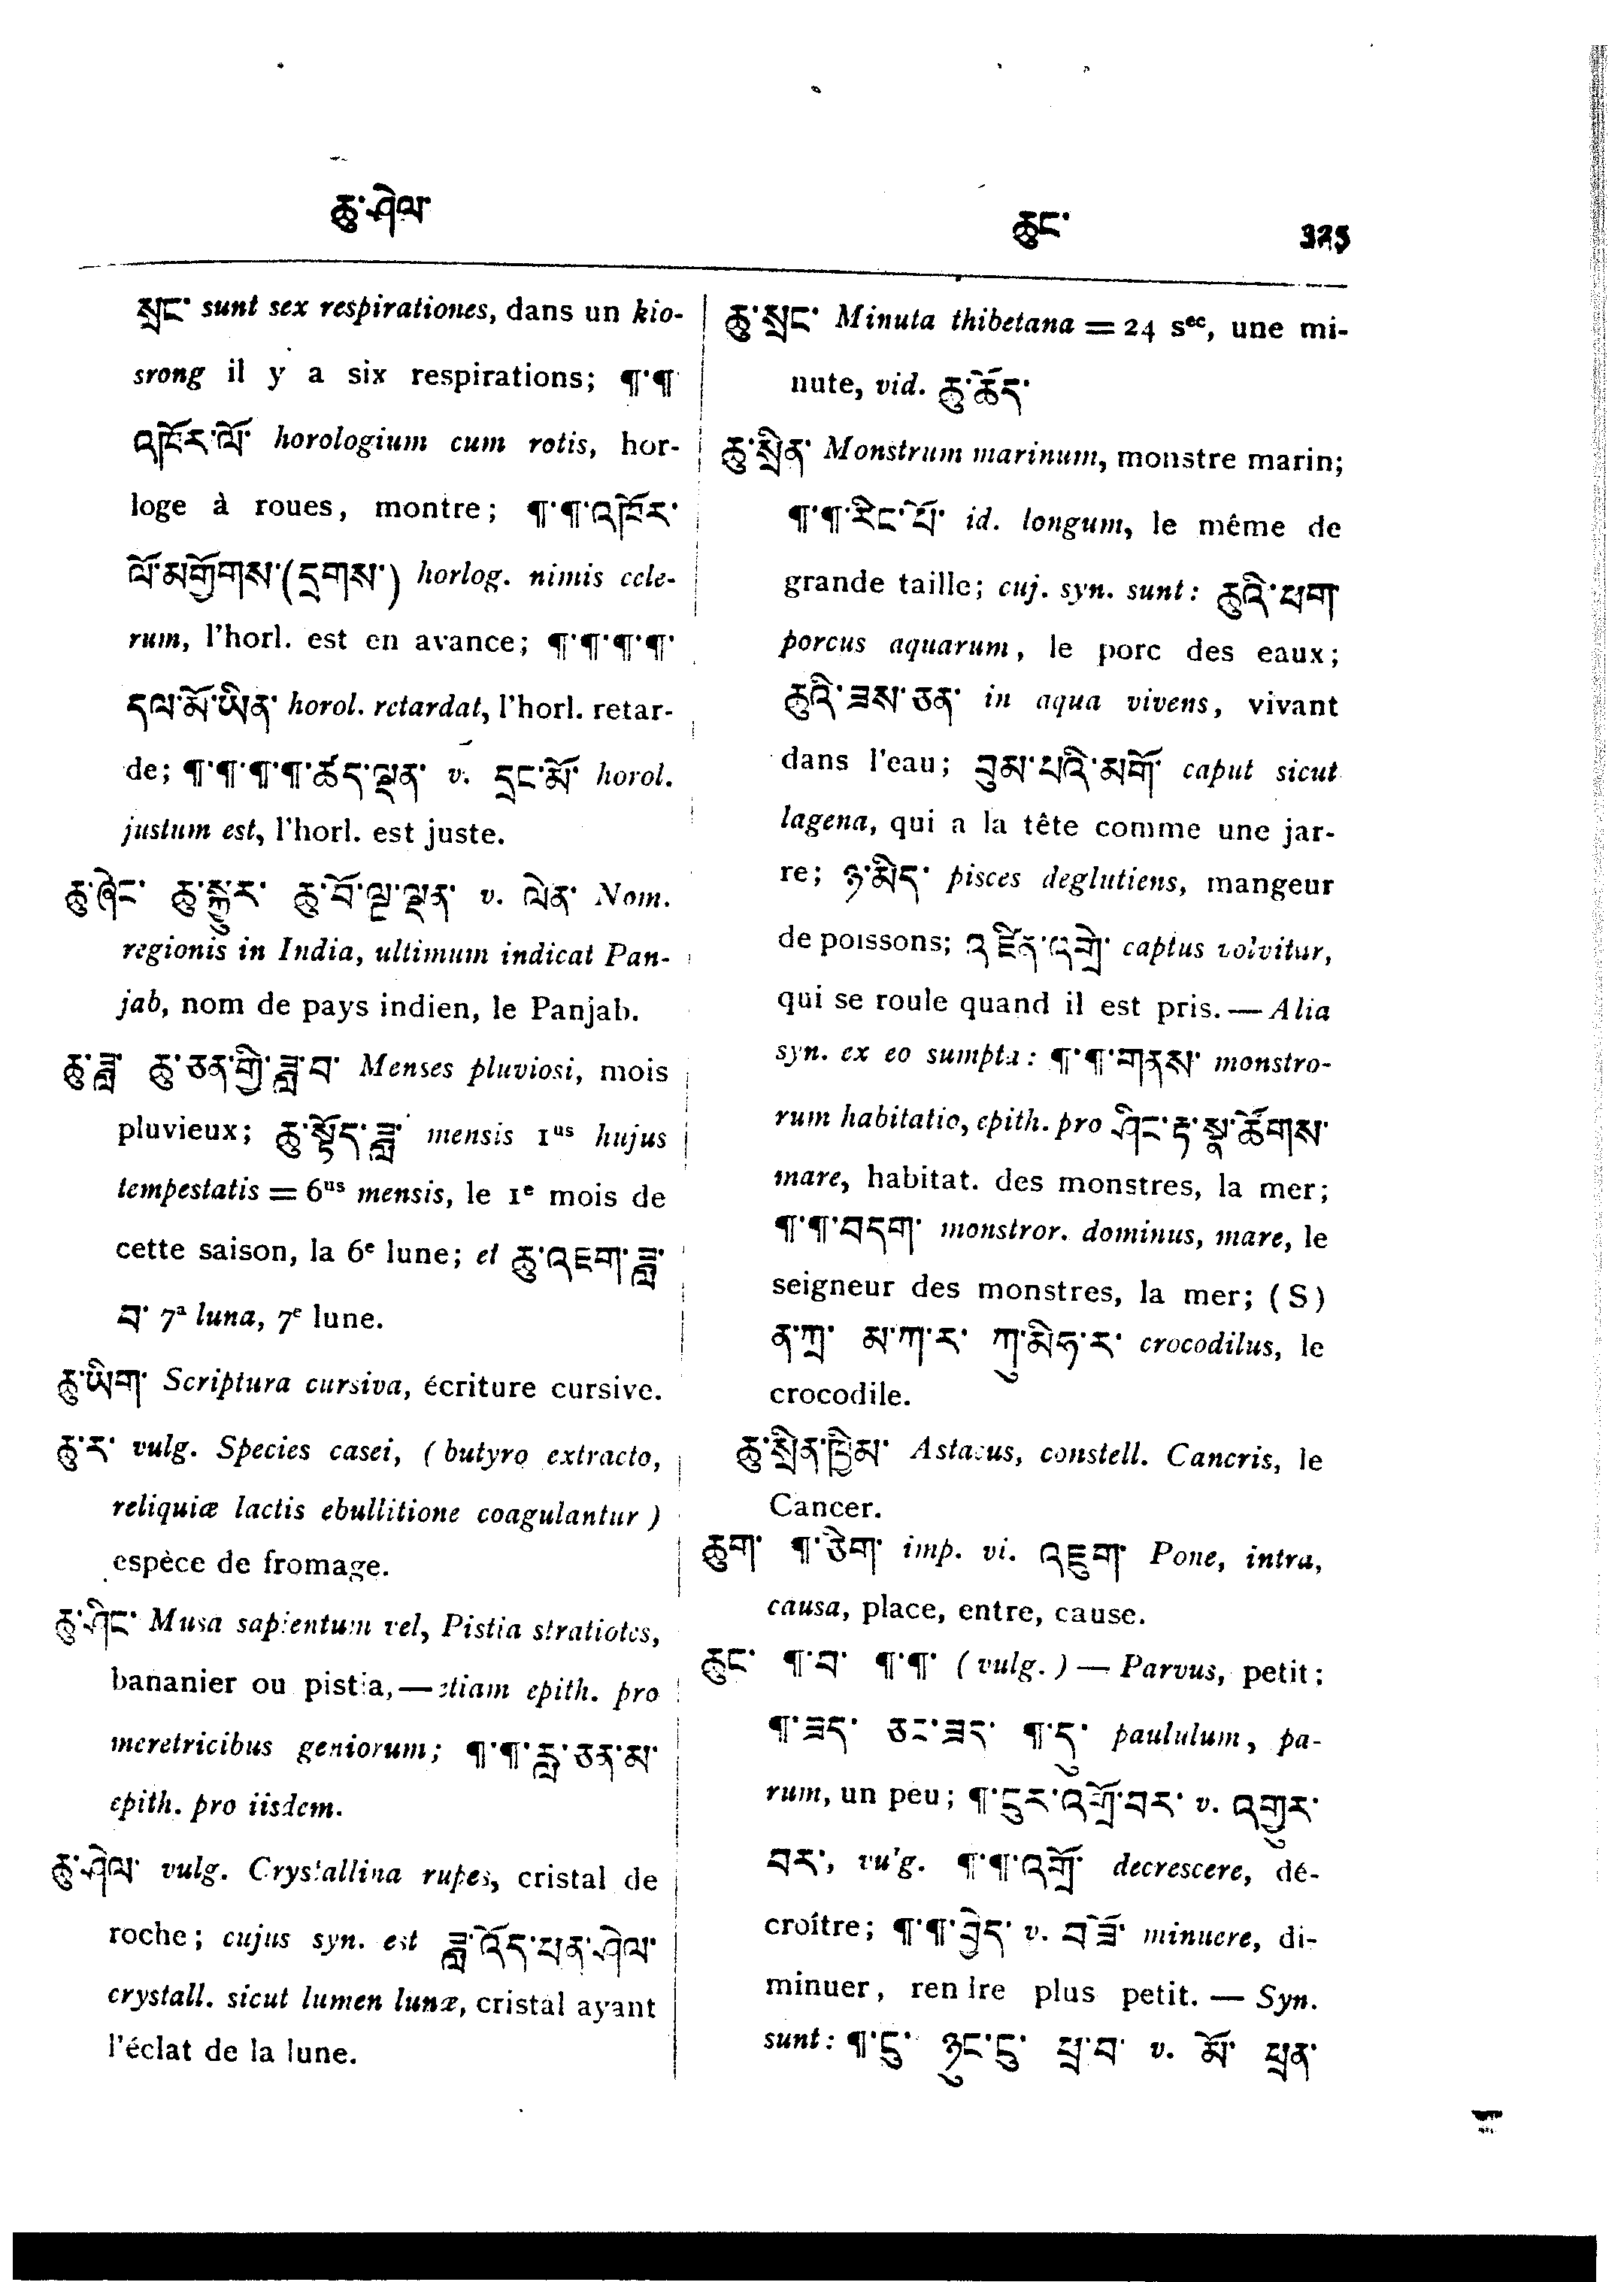 ཆུ་ཤེལ་
ཆུང་ 325
སྲང་ sunt sex respirationes, dans un kio-
srong il y a six respirations; ¶་¶
འཁོར་ལོ་ horologium cum rotis, hor-
loge à roues, montre; ¶་¶་འཁོར་
ལོ་མགྱོགས་(དྲགས་) horlog. nimis cele-
rum, l'horl. est en avance; ¶་¶་¶་¶་
དལ་མོ་ཡིན་ horol. retardat, l'horl. retar-
de; ¶་¶་¶་¶་ཚད་ལྡན་ v. དྲང་མོ་ horol.
justum est, l'horl. est juste.
ཆུ་ཞེང་ ཆུ་སྐྱུར་ ཆུ་བོ་ལྔ་ལྡན་ v. ལེན་ Nom.
regionis in India, ultimum indicat Pan-
jab, nom de pays indien, le Panjab.
ཆུ་ཟླ་ ཆུ་ཅན་གྱི་ཟླ་བ་ Menses pluviosi, mois
pluvieux; ཆུ་སྟོད་ཟླ་ mensis 1us hujus
tempestatis = 6us mensis, le 1e mois de
cette saison, la 6e lune; et ཆུ་འཇག་ཟླ་
བ་ 7a luna, 7e lune.
ཆུ་ཡིག་ Scriptura cursiva, écriture cursive.
ཆུ་ར་ vulg. Species casei, (butyro extracto,
reliquiæ lactis ebullitione coagulantur)
espèce de fromage.
ཆུ་ཤིང་ Musa sapientum vel, Pistia stratiotes,
bananier ou pistia, — etiam epith. pro
meretricibus geniorum; ¶་¶་རླ་ཅན་མ་
epith. pro iisdem.
ཆུ་ཤེལ་ vulg. Crystallina rupes, cristal de
roche; cujus syn. est ཟླ་འོད་པན་ཤེལ་
crystall. sicut lumen lunæ, cristal ayant
l'éclat de la lune.
ཆུ་སྲང་ Minuta thibetana = 24 sec, une mi-
nute, vid. ཆུ་ཚོད་
ཆུ་སྲིན་ Monstrum marinum, monstre marin;
¶་¶་རིང་པོ་ id. longum, le même de
grande taille; cuj. syn. sunt: ཆུའི་ཕག་
porcus aquarum, le porc des eaux;
ཆུའི་ཟས་ཅན་ in aqua vivens, vivant
dans l'eau; བུམ་པའི་མགོ་ caput sicut
lagena, qui a la tête comme une jar-
re; ཉ་མིད་ pisces deglutiens, mangeur
de poissons; འཛིན་འགྲེ་ captus volvitur,
qui se roule quand il est pris. — Alia
syn. ex eo sumpta: ¶་¶་གནས་ monstro-
rum habitatio, epith. pro ཤིང་རྟ་སྣ་ཚོགས་
mare, habitat. des monstres, la mer;
¶་¶་བདག་ monstror. dominus, mare, le
seigneur des monstres, la mer; (S)
ན་ཀྲ་ མ་ཀ་ར་ ཀུ་མཱིཧ་ར་ crocodilus, le
crocodile.
ཆུ་སྲིན་ཁྱིམ་ Astacus, constell. Cancris, le
Cancer.
ཆུག་ ¶་ཅིག་ imp. vi. འཇུག་ Pone, intra,
causa, place, entre, cause.
ཆུང་ ¶་བ་ ¶་¶་ (vulg.) — Parvus, petit;
¶་ཟད་ ཅང་ཟད་ ¶་དུ་ paululum, pa-
rum, un peu; ¶་ངུར་འགྲོ་བར་ v. འགྱུར་
བར་, vulg. ¶་¶་འགྲོ་ decrescere, dé-
croître; ¶་¶་བྱེད་ v. བཟོ་ minuere, di-
minuer, rendre plus petit. — Syn.
sunt: ¶་ངུ་ ཉུང་ངུ་ ཕྲ་བ་ v. མོ་ ཕྲན་